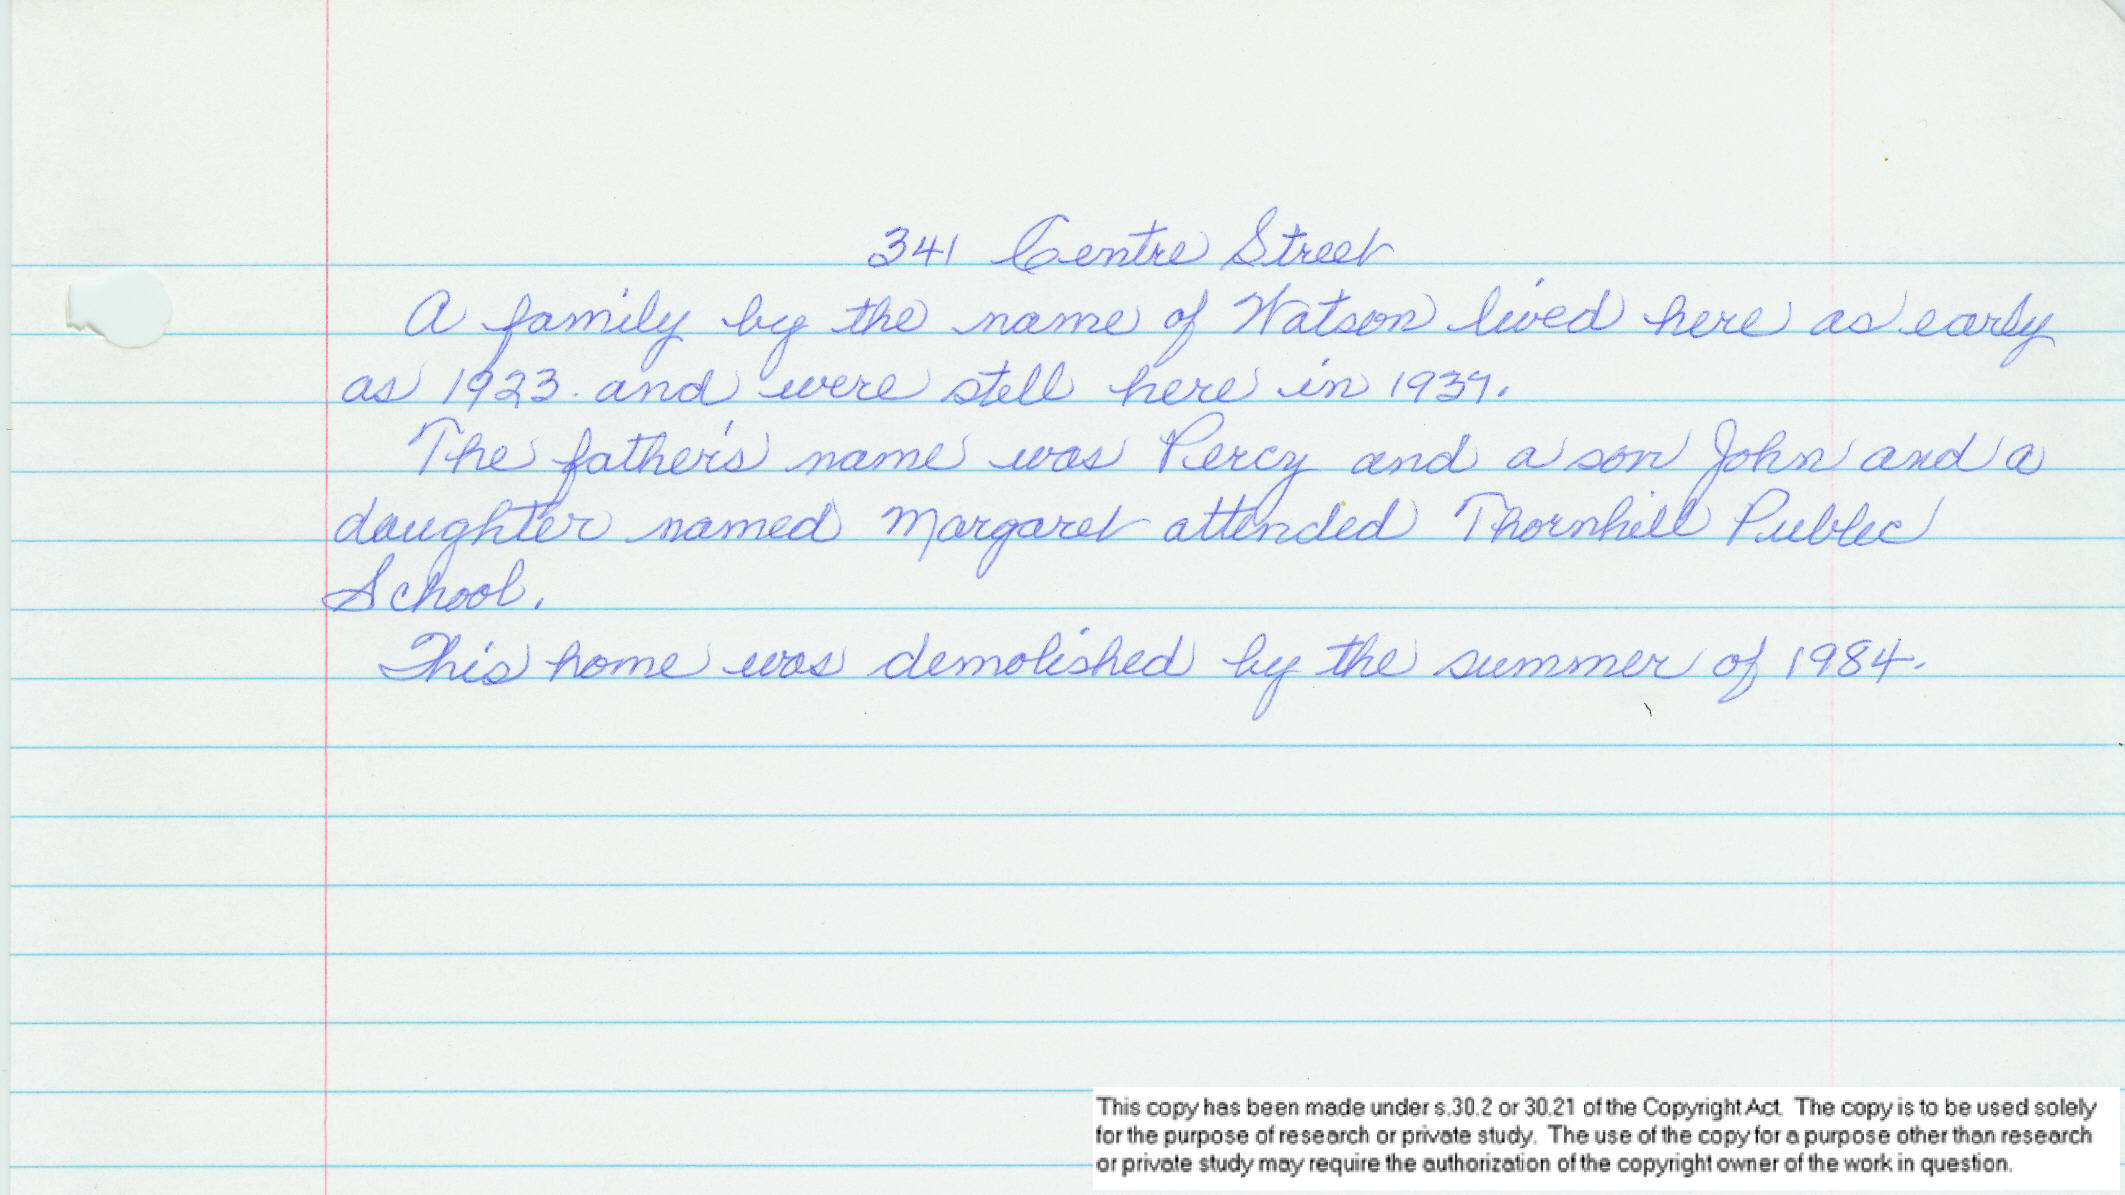 341 Centre Street
A family by the name of Watson lived here as early
as 1923. and were still here in 1937.
The father's name was Percy and a son John and a
daughter named Margaret attended Thornhill Public
School.
This home was demolished by the summer of 1984.
This copy has been made under s.30.2 or 30.21 of the Copyright Act. The copy is to be used solely
for the purpose of research or private study. The use of the copy for a purpose other than research
or private study may require the authorization of the copyright owner of the work in question.